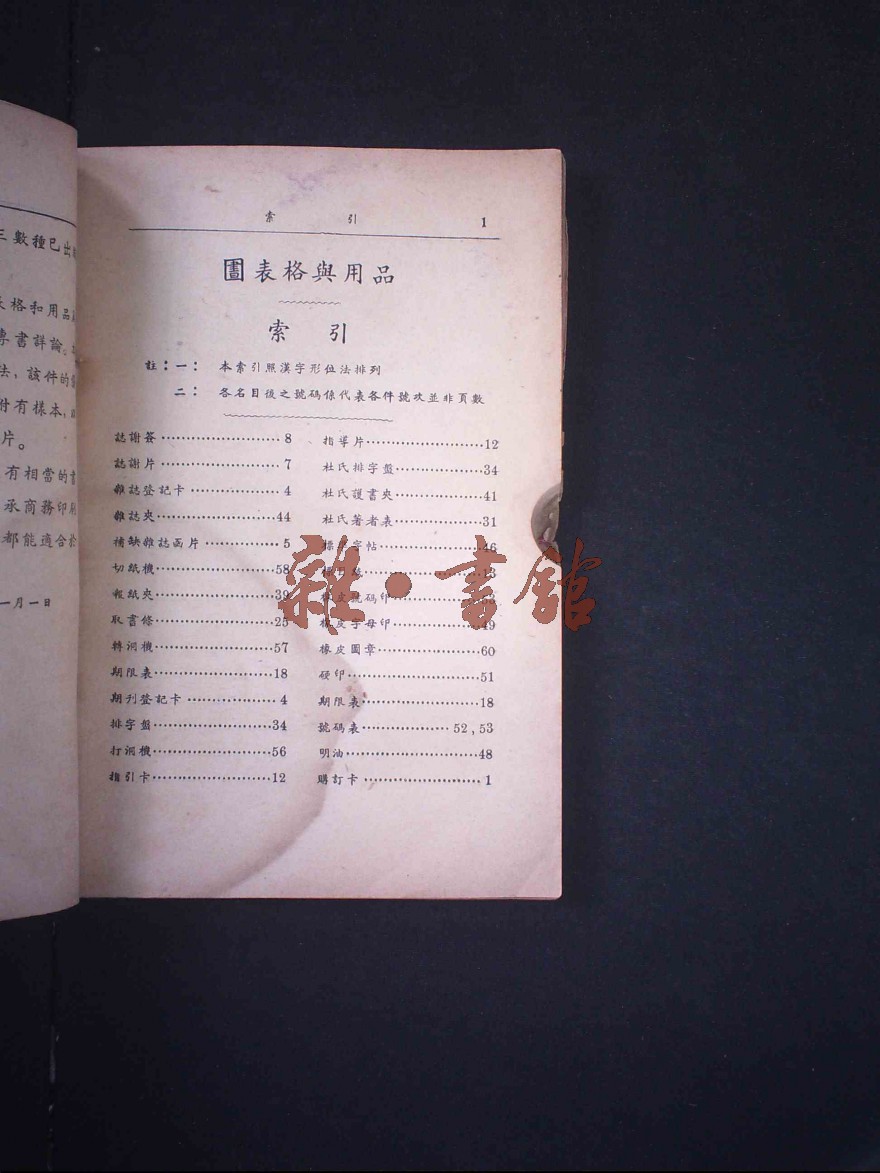 三數種已出
格和用品
專書詳論。
法，該件的
付有樣本，
片。
有相當的書
承商務印刷
都能適合於
一月一日
索 引 1
圕表格與用品
索 引
註：一： 本索引照漢字形位法排列
二： 各名目後之號碼係代表各件號次並非頁數
誌謝簽 8
誌謝片 7
雜誌登記卡 4
雜誌夾 44
補缺雜誌函片 5
切紙機 58
報紙夾 39
取書條 25
轉洞機 57
期限表 18
期刊登記卡 4
排字盤 34
打洞機 56
指引卡 12
指導片 12
杜氏排字盤 34
杜氏護書夾 41
杜氏著者表 31
標 字帖 46
13
號碼印
橡皮字母印 49
橡皮圖章 60
硬印 51
期限表 18
號碼表 52,53
明油 48
購訂卡 1
雜·書館